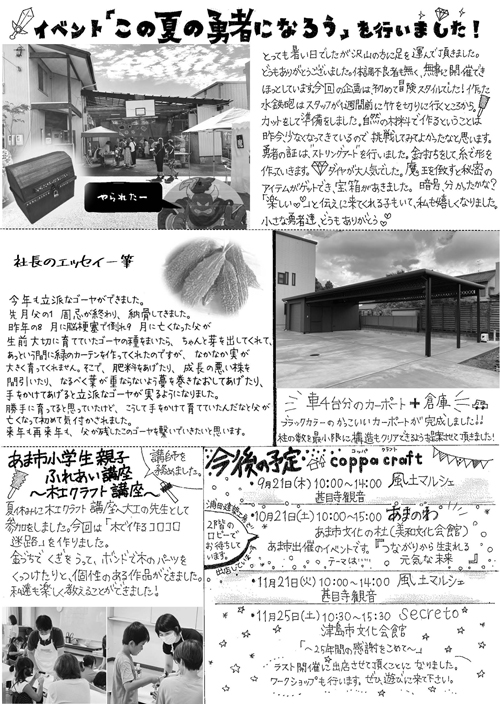 イベント「この夏の勇者になろう」を行いました!
とっても暑い日でしたが沢山の方に足を運んで頂きました。
どうもありがとうございました。体調不良者も無く、無事に開催でき
ほっとしています。今回の企画は、初めて冒険スタイルでした!作った
水鉄砲はスタッフが1週間前に竹を切りに行くところから。
カットをして準備をしました。自然の材料で作るということは
昨今少なくなってきているので挑戦してみてよかったなと思います。
勇者の証は、ストリングアートを行いました。釘打ちをして、糸で形を
作っていきます。ダイヤが大人気でした。魔王を倒すと秘密の
アイテムがゲットでき、宝箱があきました。暗号、分かったかな?
「楽しい♡」と伝えに来てくれる子もいて、私も嬉しくなりました。
小さな勇者達、どうもありがとう♡
やられたー
社長のエッセイ一筆
今年も立派なゴーヤができました。
先月父の1周忌が終わり、納骨してきました。
昨年の8月に脳梗塞で倒れ9月に亡くなった父が
生前大切に育てていたゴーヤの種をまいたら、ちゃんと芽を出してくれて、
あっという間に緑のカーテンを作ってくれたのですが、なかなか実が
大きく育ってくれません。そこで、肥料をあげたり、成長の悪い枝を
間引いたり、なるべく葉が重ならないよう蔓を巻きなおしてあげたり、
手をかけてあげると立派なゴーヤが実るようになりました。
勝手に育ってると思っていたけど、こうして手をかけて育てていたんだなと父が
亡くなって初めて気付かされました。
来年も再来年も、父が残したこのゴーヤを繋いでいきたいと思います。
車4台分のカーポート+倉庫
ブラックカラーのかっこいいカーポートが完成しました!!
柱の数を最小限に構造もクリアできるよう提案させて頂きました!
あま市小学生親子
ふれあい講座
〜木工クラフト講座〜
講師を務めました。
夏休みに木工クラフト講座へ大工の先生として
参加をしました。今回は「木で作るコロコロ
迷路」を作りました。
金づちでくぎをうって、ボンドで木のパーツを
くっつけたりと、個性のある作品ができました。
私達も楽しく教えることができました!
今後の予定 coppa craft
コッパ クラフト
9月21日(木) 10:00〜14:00 風土マルシェ
甚目寺観音
10月21日(土) 10:00〜15:00 あまのわ
あま市文化の杜(美和文化会館)
あま市出催のイベントです。『つながりから生まれる
テーマは… 元気な未来』
2階の
ロビーで
お待ちして
います。
出店しています
11月21日(火) 10:00〜14:00 風土マルシェ
甚目寺観音
11月25日(土) 10:30〜15:30 secreto
津島市文化会館
「〜25年間の感謝をこめて〜」
ラスト開催に出店させて頂くことになりました。
ワークショップも行います。ぜひ、遊びに来て下さい。